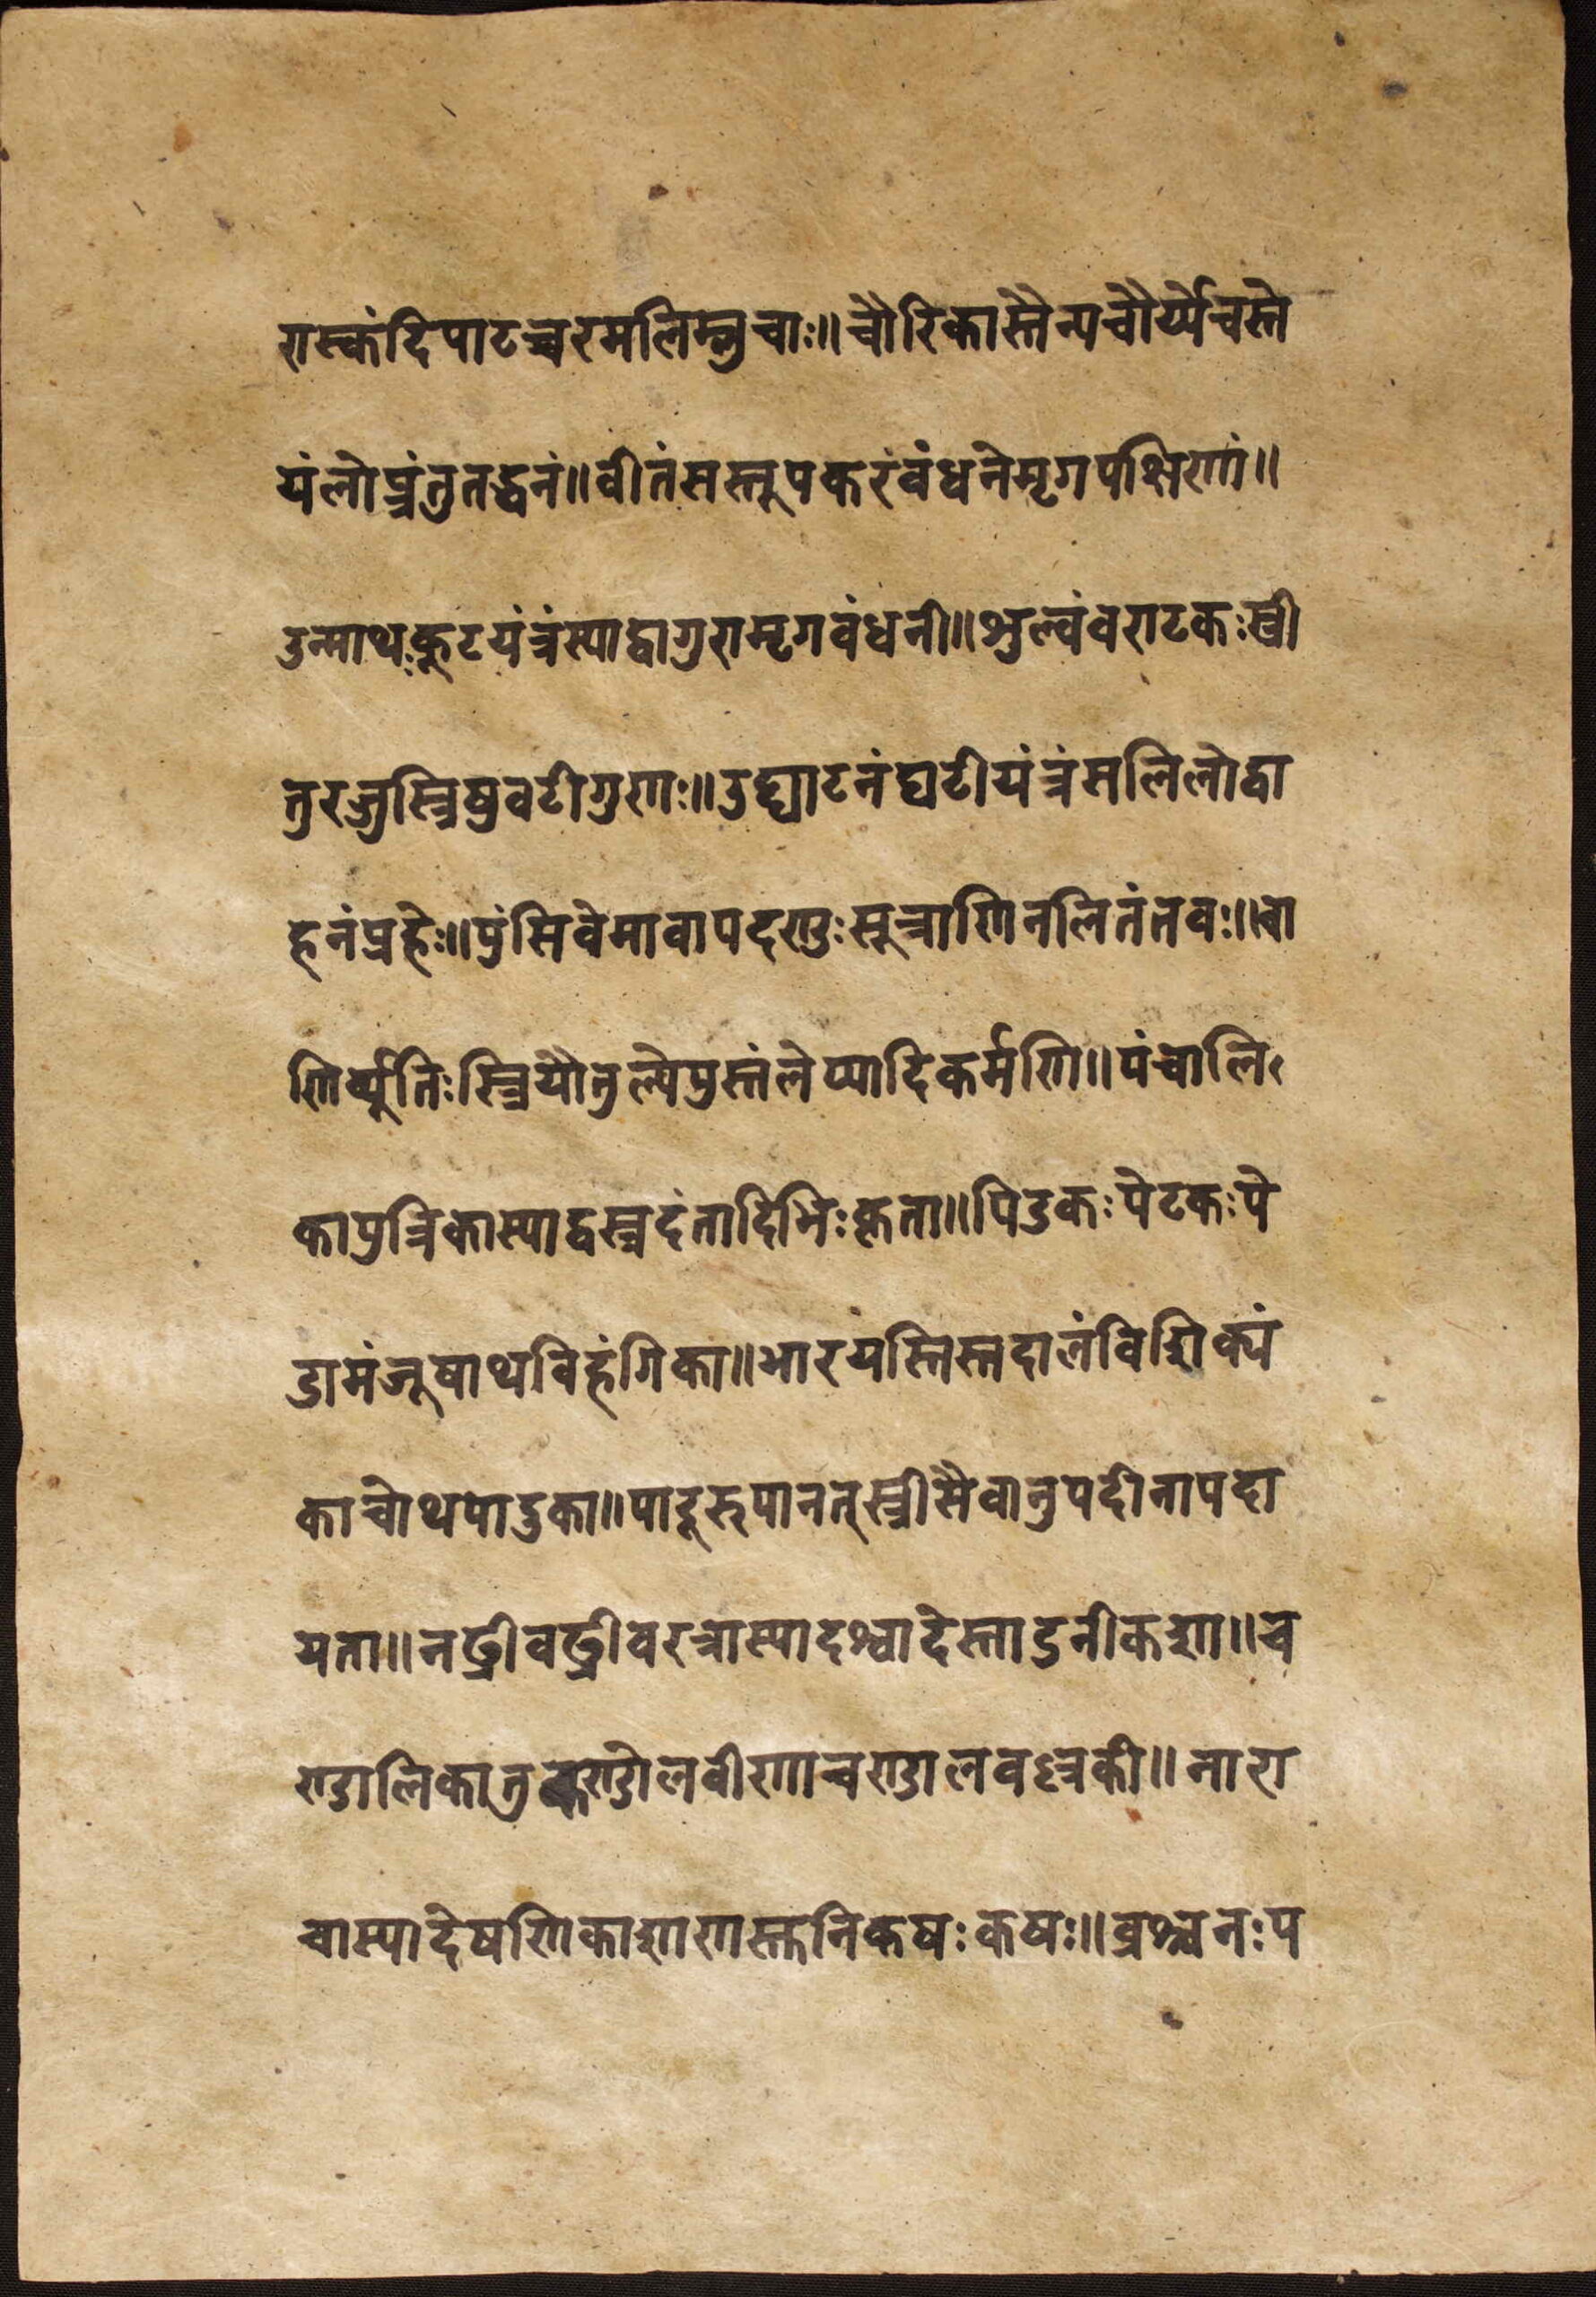 रास्कंदिपाटच्चरमलिम्लुचाः॥चौरिकास्तैन्यचौर्य्येचस्ते
यंलोप्त्रंतुतद्धनं॥वीतंसस्तूपकरंवंधनेमृगपक्षिणां॥
उन्माथःकूटयंत्रंस्याद्वागुरामृगवंधनी॥शुल्वंवराटकःस्त्री
तुरज्जुस्त्रिषुवटीगुणः॥उद्घाटनंघटीयंत्रंमलिलोद्वा
हनंप्रहेः॥पुंसिवेमावापदण्डःसूत्राणिनलितंतवः॥वा
णिर्व्यूतिःस्त्रियौतुल्येपुस्तंलेप्यादिकर्मणि॥पंचालि
कापुत्रिकास्याद्वस्त्रदंतादिभिःकृता॥पिडकःपेटकःपे
डामंजूषाथविहंगिका॥भारयस्तिस्तदालंविशिक्यं
काचोथपादुका॥पादूरुपानत्स्त्रीसैवानुपदीनापदा
यता॥नद्ध्रीवद्ध्रीवरत्रास्यादश्वादेस्ताडनीकशा॥च
ण्डालिकातुकण्डोलवीणाचण्डालवल्लकी॥नारा
चास्यादेषणिकाशाणस्तुनिकषःकषः॥व्रश्चनःप